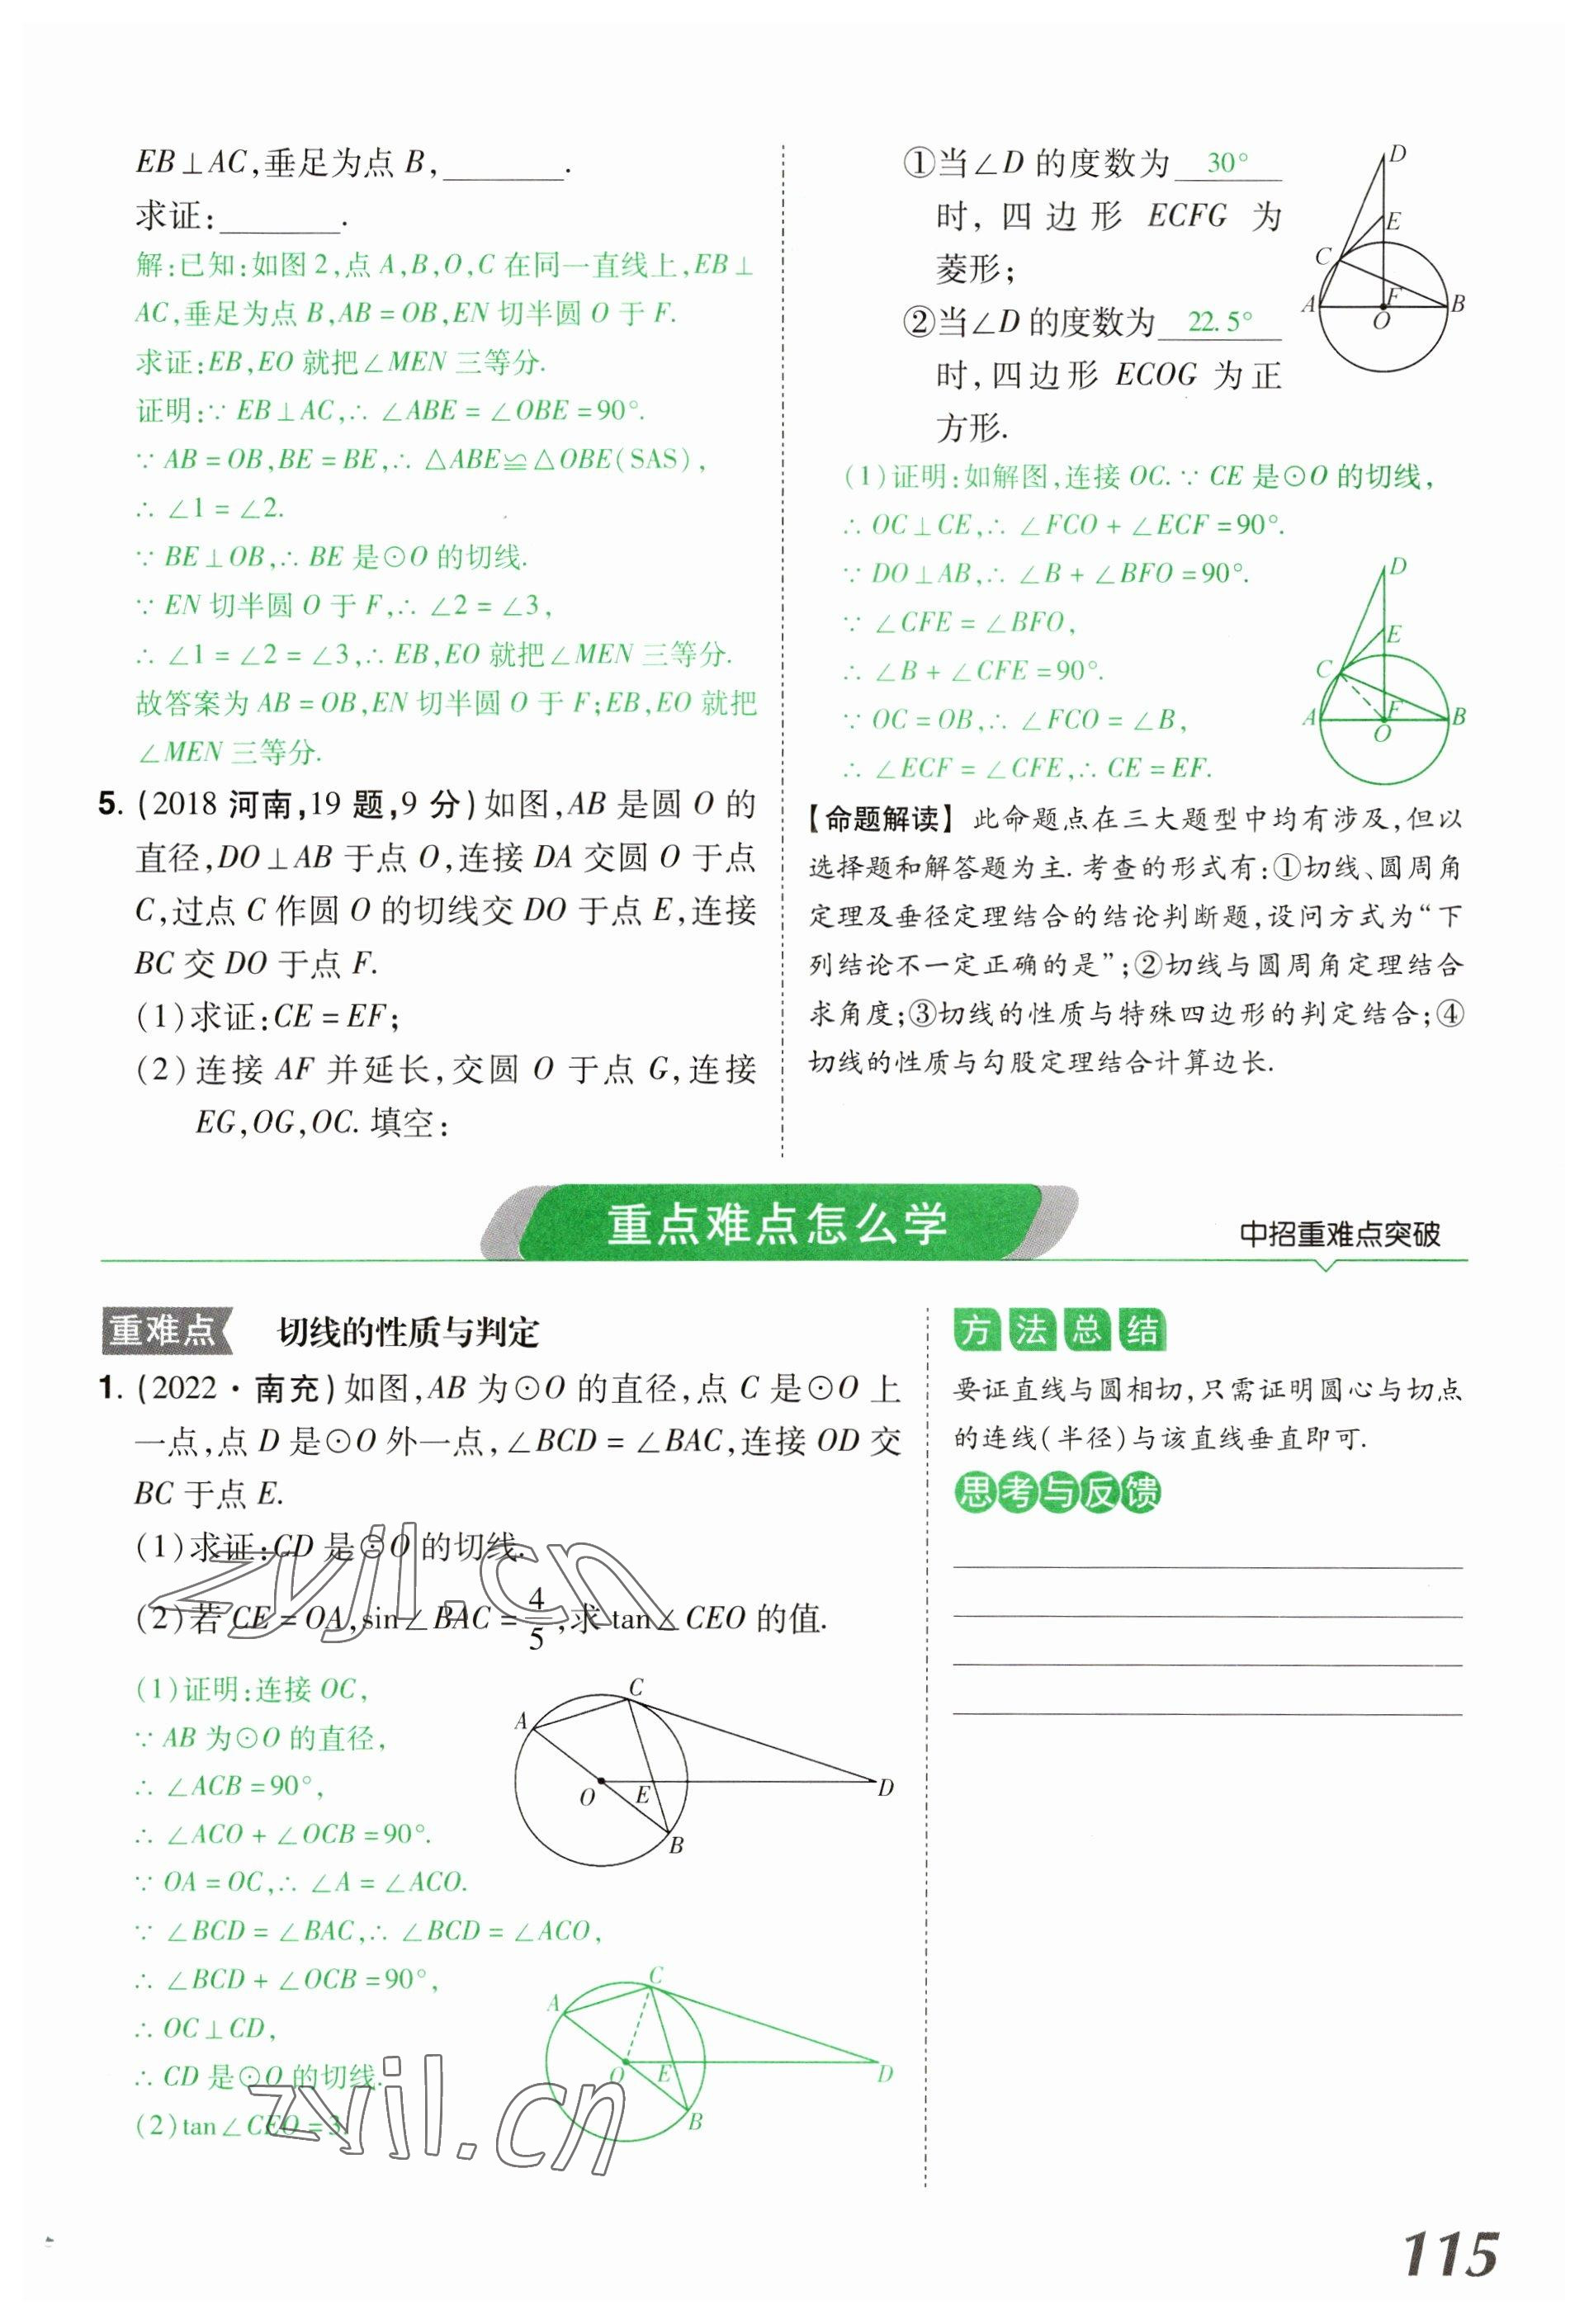 EB⊥AC,垂足为点 B,________.
求证:________.
解:已知:如图2,点 A,B,O,C 在同一直线上,EB⊥
AC,垂足为点 B,AB=OB,EN 切半圆 O 于 F.
求证:EB,EO 就把∠MEN 三等分.
证明:∵ EB⊥AC,∴ ∠ABE=∠OBE=90°.
∵ AB=OB,BE=BE,∴ △ABE≌△OBE(SAS),
∴ ∠1=∠2.
∵ BE⊥OB,∴ BE 是⊙O 的切线.
∵ EN 切半圆 O 于 F,∴ ∠2=∠3,
∴ ∠1=∠2=∠3,∴ EB,EO 就把∠MEN 三等分.
故答案为 AB=OB,EN 切半圆 O 于 F;EB,EO 就把
∠MEN 三等分.
5. (2018 河南,19 题,9 分)如图,AB 是圆 O 的
直径,DO⊥AB 于点 O,连接 DA 交圆 O 于点
C,过点 C 作圆 O 的切线交 DO 于点 E,连接
BC 交 DO 于点 F.
(1)求证:CE=EF;
(2)连接 AF 并延长,交圆 O 于点 G,连接
EG,OG,OC. 填空:
①当∠D 的度数为 30°
时,四边形 ECFG 为
菱形;
②当∠D 的度数为 22.5°
时,四边形 ECOG 为正
方形.
D
E
C
A
F
B
O
(1)证明:如解图,连接 OC. ∵ CE 是⊙O 的切线,
∴ OC⊥CE,∴ ∠FCO+∠ECF=90°.
∵ DO⊥AB,∴ ∠B+∠BFO=90°.
∵ ∠CFE=∠BFO,
∴ ∠B+∠CFE=90°.
∵ OC=OB,∴ ∠FCO=∠B,
∴ ∠ECF=∠CFE,∴ CE=EF.
D
E
C
A
F
B
O
【命题解读】此命题点在三大题型中均有涉及,但以
选择题和解答题为主. 考查的形式有:①切线、圆周角
定理及垂径定理结合的结论判断题,设问方式为“下
列结论不一定正确的是”;②切线与圆周角定理结合
求角度;③切线的性质与特殊四边形的判定结合;④
切线的性质与勾股定理结合计算边长.
重点难点怎么学
中招重难点突破
重难点 切线的性质与判定
1. (2022·南充)如图,AB 为⊙O 的直径,点 C 是⊙O 上
一点,点 D 是⊙O 外一点,∠BCD=∠BAC,连接 OD 交
BC 于点 E.
(1)求证:CD 是⊙O 的切线.
(2)若 CE=OA,sin∠BAC=4/5,求 tan∠CEO 的值.
(1)证明:连接 OC,
∵ AB 为⊙O 的直径,
∴ ∠ACB=90°,
∴ ∠ACO+∠OCB=90°.
∵ OA=OC,∴ ∠A=∠ACO.
∵ ∠BCD=∠BAC,∴ ∠BCD=∠ACO,
∴ ∠BCD+∠OCB=90°,
∴ OC⊥CD,
∴ CD 是⊙O 的切线.
(2)tan∠CEO=3
C
A
O
E
D
B
C
A
O
E
D
B
zyjl.cn
zyjl.cn
方法总结
要证直线与圆相切,只需证明圆心与切点
的连线(半径)与该直线垂直即可.
思考与反馈
115